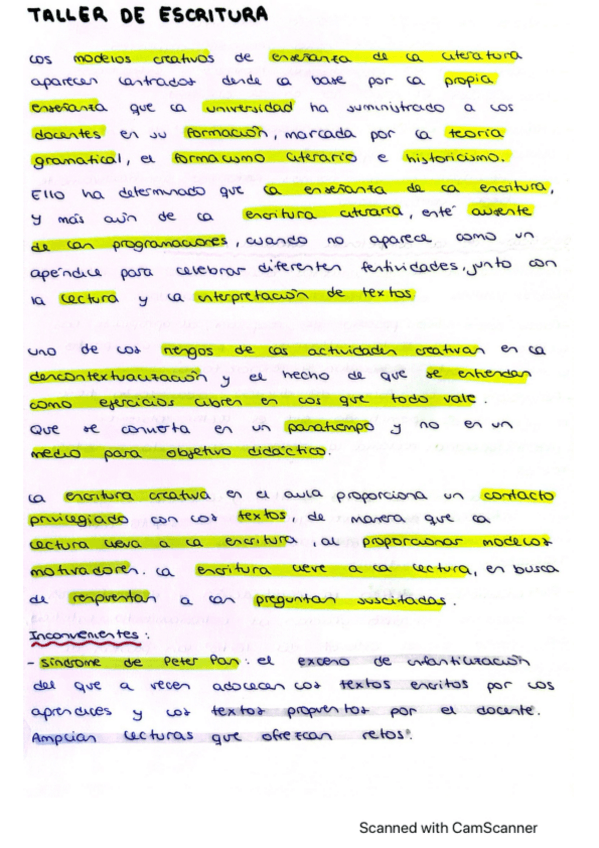 TALLER DE ESCRITURA
Los modelos creativos de enseñanza de la literatura
aparecen lastrados desde la base por la propia
enseñanza que la universidad ha suministrado a los
docentes en su formación, marcada por la teoría
gramatical, el formalismo literario e historicismo.
Ello ha determinado que la enseñanza de la escritura,
y más aún de la escritura literaria, esté ausente
de las programaciones, cuando no aparece como un
apéndice para celebrar diferentes festividades, junto con
la lectura y la interpretación de textos
Uno de los riesgos de las actividades creativas es la
descontextualización y el hecho de que se entiendan
como ejercicios libres en los que todo vale.
Que se convierta en un pasatiempo y no en un
medio para objetivo didáctico.
La escritura creativa en el aula proporciona un contacto
privilegiado con los textos, de manera que la
lectura lleva a la escritura, al proporcionar modelos
motivadores. La escritura lleva a la lectura, en busca
de respuestas a las preguntas suscitadas.
Inconvenientes:
- Síndrome de Peter Pan: el exceso de infantilización
del que a veces adolecen los textos escritos por los
aprendices y los textos propuestos por el docente.
Amplían lecturas que ofrezcan retos.
Scanned with CamScanner